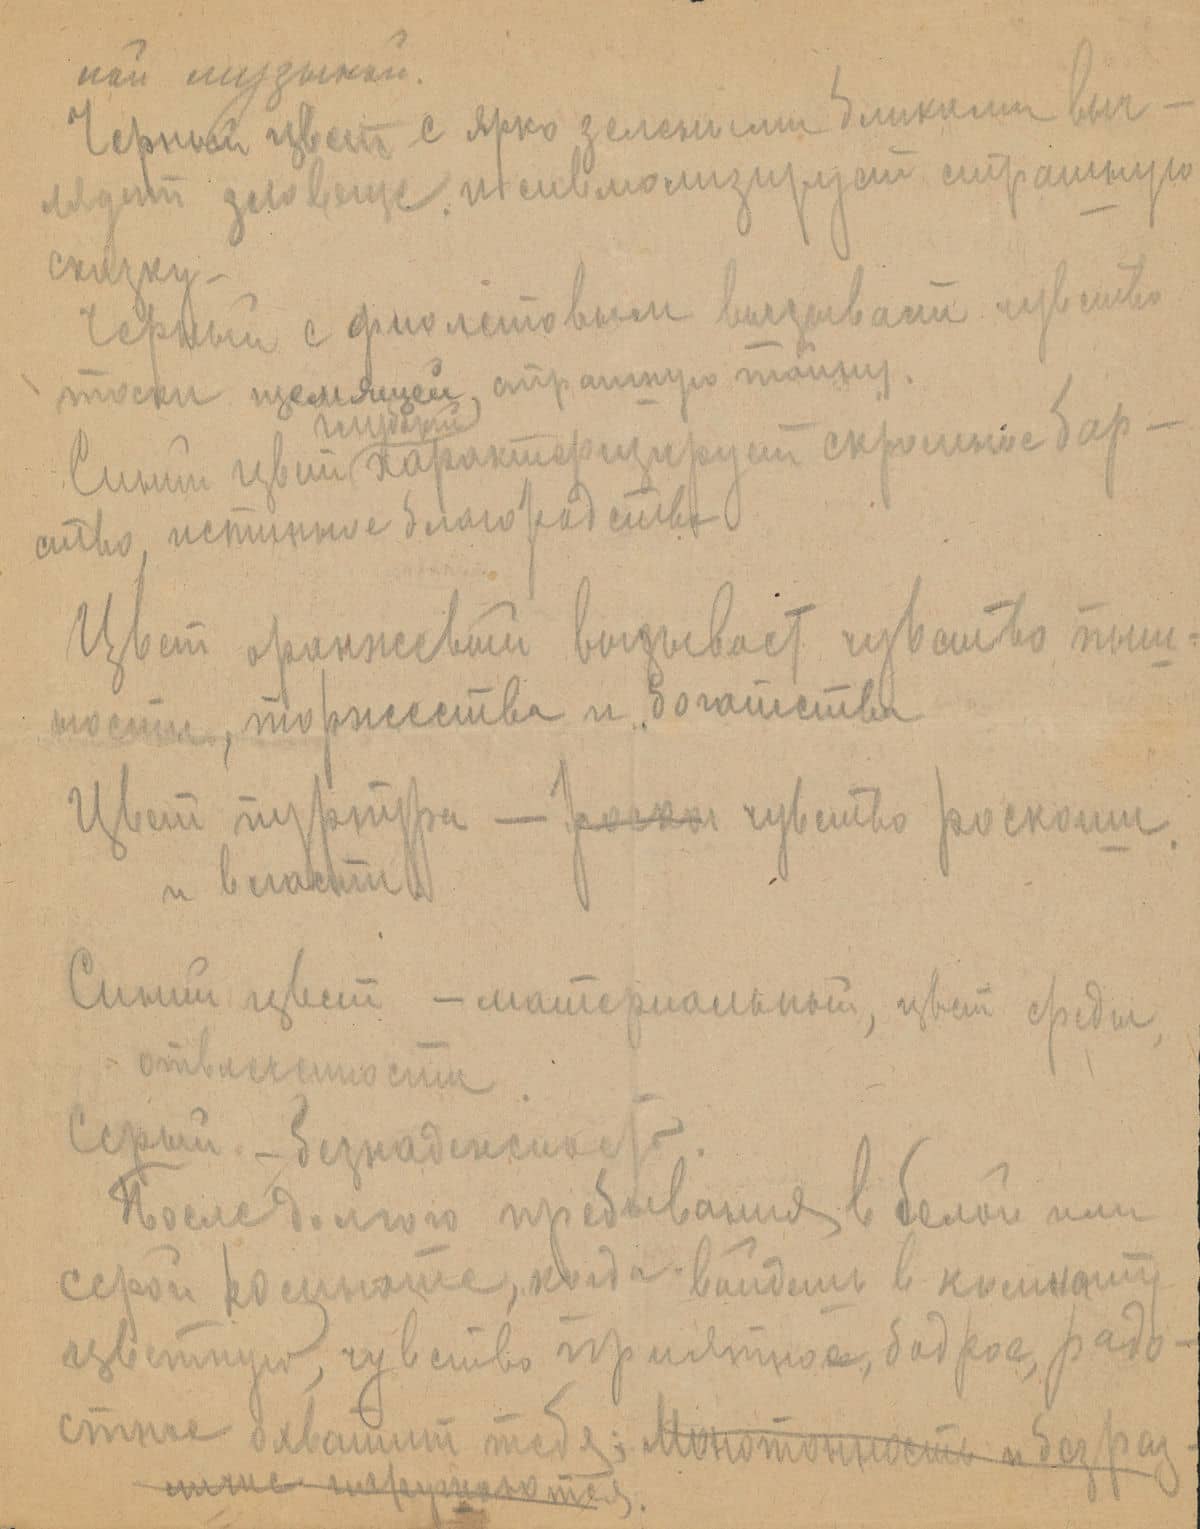 ной музыкой.
Черный цвет с ярко зелеными бликами выг-
лядит зловеще, и символизирует страшную
сказку-
Черный с фиолетовым вызывает чувство
тоски щемящей, страшную тайну.
глубокий
Синий цвет характеризирует скромное бар-
ство, истинное благородство
Цвет оранжевый вызывает чувство пыш-
ности, торжества и богатства
Цвет пурпура — роскош чувство роскоши
и власти.
Синий цвет — материальный, цвет среды,
отвлеченности.
Серый - безнадежность.
После долгого пребывания в белой или
серой комнате, когда войдешь в комнату
цветную, чувство приятное, бодрое, радо-
стное охватит тебя; Монотонность и безраз-
личие нарушаются.